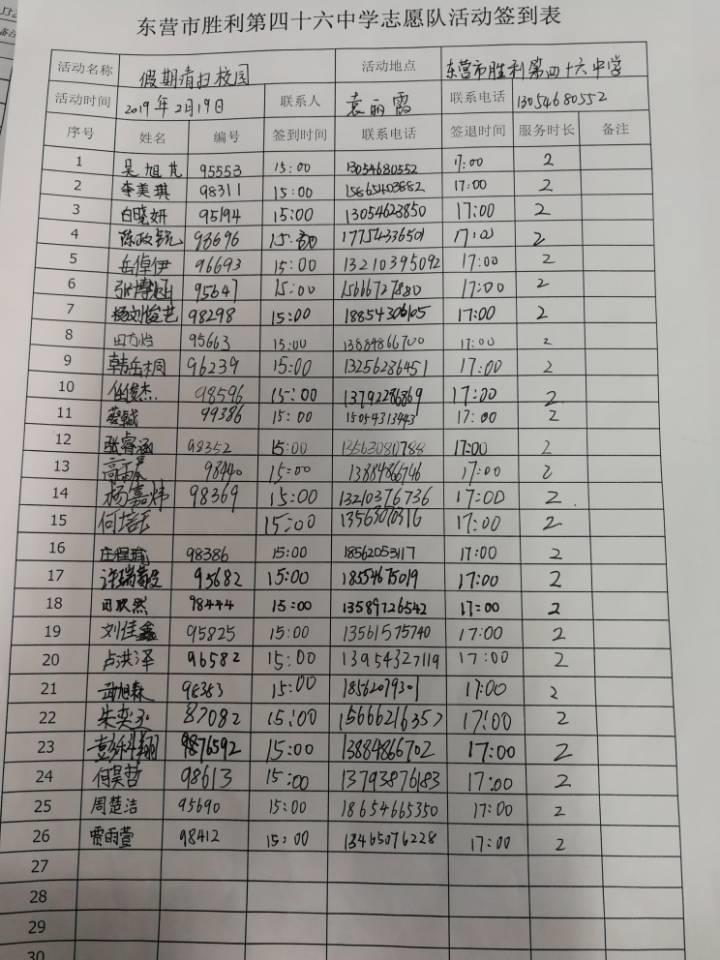 东营市胜利第四十六中学志愿队活动签到表
活动名称 假期清扫校园 活动地点 东营市胜利第四十六中学
活动时间 2019年2月19日 联系人 袁丽霞 联系电话 13054680552
序号 姓名 编号 签到时间 联系电话 签退时间 服务时长 备注
1 吴旭芃 95553 15:00 13054680552 17:00 2
2 李美琪 98311 15:00 15865403882 17:00 2
3 白晓妍 95194 15:00 13054623850 17:00 2
4 陈政锐 98696 15:00 17754336501 17:00 2
5 岳倬伊 96693 15:00 13210395092 17:00 2
6 张博涵 95647 15:00 15666727880 17:00 2
7 杨刘俊艺 98298 15:00 18854306105 17:00 2
8 田方灿 95663 15:00 13884866700 17:00 2
9 韩岳桐 96239 15:00 13256286451 17:00 2
10 任俊杰 98596 15:00 13792276869 17:00 2
11 99386 15:00 15054313443 17:00 2
12 张睿涵 98352 15:00 13563080788 17:00 2
13 98440 15:00 13884866746 17:00 2
14 杨嘉炜 98369 15:00 13210376736 17:00 2
15 何培玉 15:00 17:00 2
16 98386 15:00 18562053117 17:00 2
17 许瑞毅 95682 15:00 18554675019 17:00 2
18 田欣然 98444 15:00 13589726542 17:00 2
19 刘佳鑫 95825 15:00 13561575740 17:00 2
20 卢洪泽 96582 15:00 13954327119 17:00 2
21 武旭森 98353 15:00 18562079301 17:00 2
22 朱奕玉 87082 15:00 15666216357 17:00 2
23 彭科翔 9876592 15:00 13884866702 17:00 2
24 何昊哲 98613 15:00 13793876183 17:00 2
25 周楚洁 95690 15:00 18654665350 17:00 2
26 贾雨萱 98412 15:00 13465076228 17:00 2
27
28
29
30